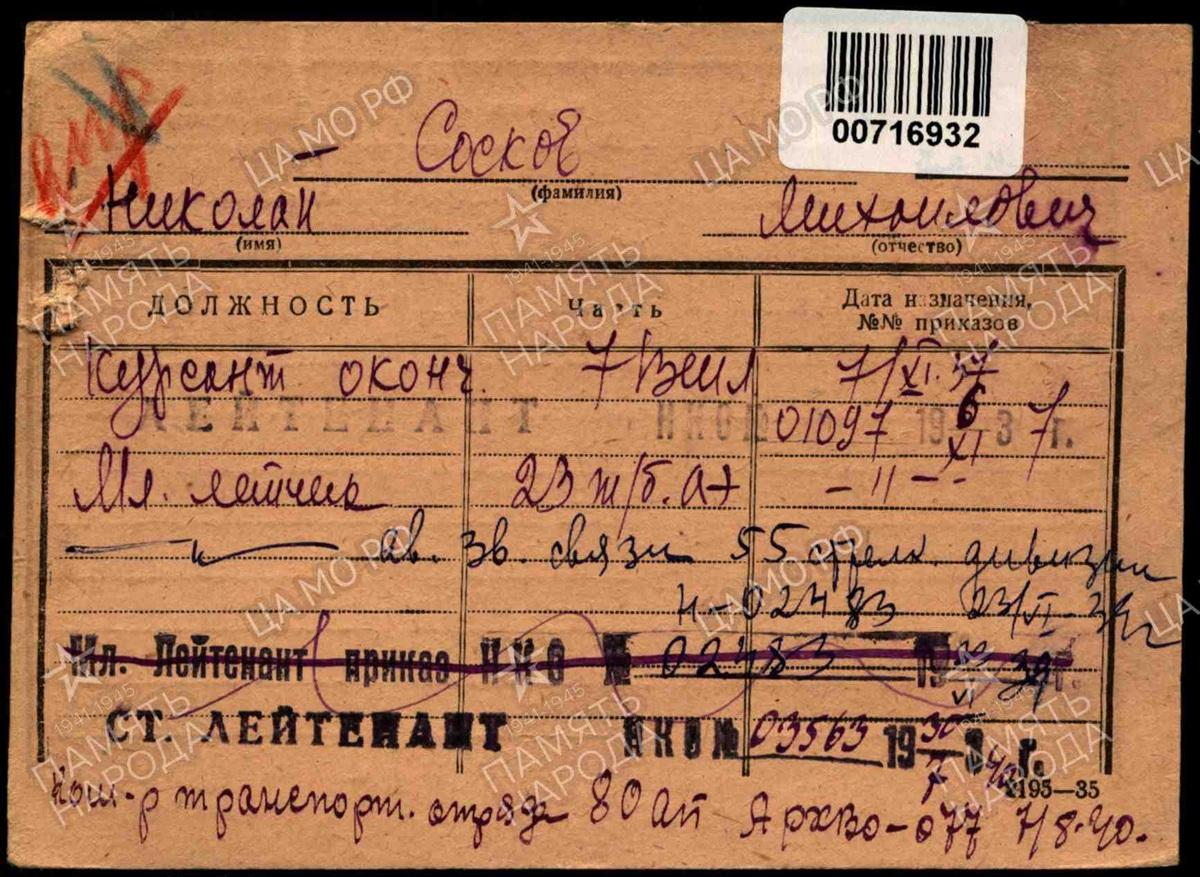 00716932
умер
Сосков
(фамилия)
Николай Михайлович
(имя) (отчество)
ДОЛЖНОСТЬ Часть Дата назначения, №№ приказов
Курсант оконч. 7 Вшл 7/XI.37
ЛЕЙТЕНАНТ НКО № 01097 19 6/XI 37 г.
Мл. летчик 23 т/б. аэ - 11 -
— " — ав. зв. связи 55 стрелк. дивизии
Н-02483 23/VI-39г
Мл. Лейтенант приказ НКО № 02483 19 23/VI 39 г.
СТ. ЛЕЙТЕНАНТ НКО № 03563 19 30/X 40 г.
2195—35
Ком-р транспорт. отряда 80 ап АрхВО-077 7/8-40.
ЦА МО РФ
1941-1945
ПАМЯТЬ НАРОДА